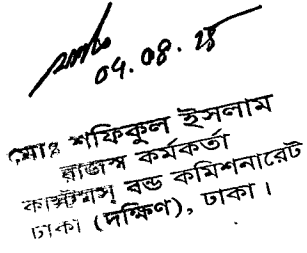 ০৭.০৮.২৪
মোঃ শফিকুল ইসলাম
রাজস্ব কর্মকর্তা
কাস্টমস্ বন্ড কমিশনারেট
ঢাকা (দক্ষিণ), ঢাকা।